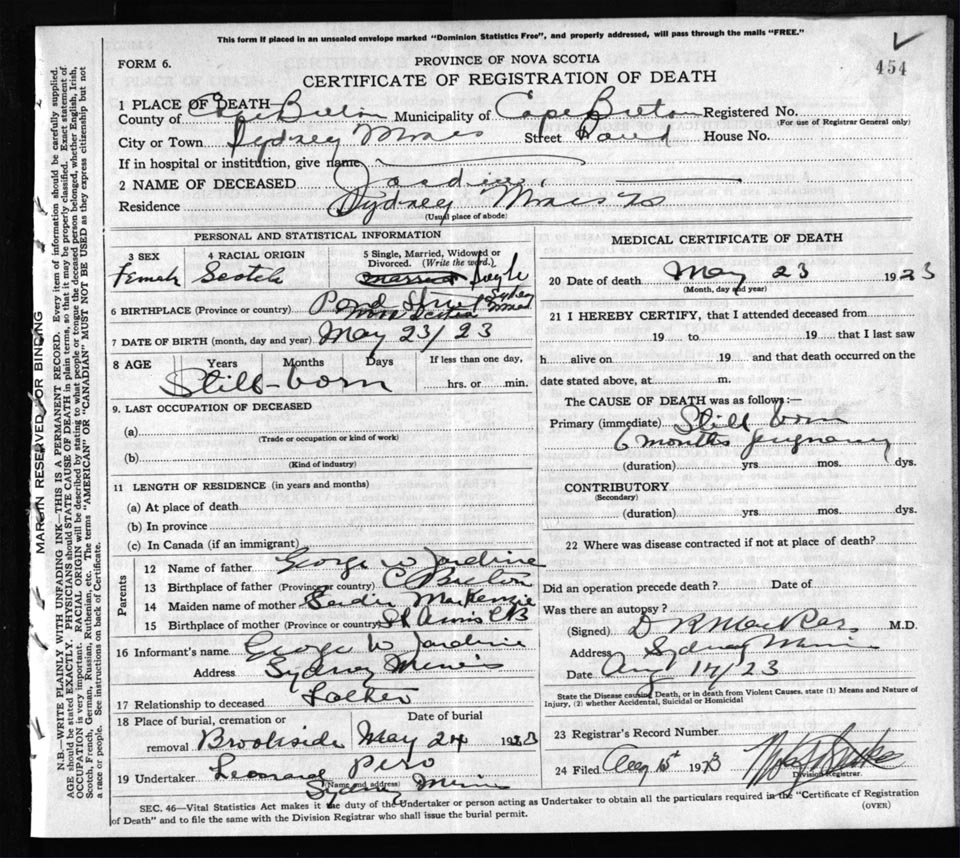 This form if placed in an unsealed envelope marked "Dominion Statistics Free", and properly addressed, will pass through the mails "FREE."
454
FORM 6.
PROVINCE OF NOVA SCOTIA
CERTIFICATE OF REGISTRATION OF DEATH
1 PLACE OF DEATH—
County of Cape Breton Municipality of Cape Breton Registered No.
(For use of Registrar General only)
City or Town Sydney Mines Street Pond House No.
If in hospital or institution, give name
2 NAME OF DECEASED Jardine
Residence Sydney Mines NS
(Usual place of abode)
PERSONAL AND STATISTICAL INFORMATION
3 SEX
Female
4 RACIAL ORIGIN
Scotch
5 Single, Married, Widowed or Divorced. (Write the word.)
Single
6 BIRTHPLACE (Province or country) Pond Street Sydney Mines
Nova Scotia
7 DATE OF BIRTH (month, day and year) May 23/23
8 AGE Years Months Days If less than one day,
Still-born hrs. or min.
9. LAST OCCUPATION OF DECEASED
(a)
(Trade or occupation or kind of work)
(b)
(Kind of industry)
11 LENGTH OF RESIDENCE (in years and months)
(a) At place of death
(b) In province
(c) In Canada (if an immigrant)
Parents
12 Name of father George W Jardine
13 Birthplace of father (Province or country) C Breton
14 Maiden name of mother MacKenzie
15 Birthplace of mother (Province or country) St Anns CB
16 Informant's name George W Jardine
Address Sydney Mines
17 Relationship to deceased Father
18 Place of burial, cremation or removal Brookside
Date of burial
May 24 1923
19 Undertaker Leonard Piro
(Name and address)
Sydney Mines
MEDICAL CERTIFICATE OF DEATH
20 Date of death May 23 1923
(Month, day and year)
21 I HEREBY CERTIFY, that I attended deceased from
19 to 19 that I last saw
h alive on 19 and that death occurred on the
date stated above, at m.
The CAUSE OF DEATH was as follows:—
Primary (immediate) Still born
6 months pregnancy
(duration) yrs. mos. dys.
CONTRIBUTORY
(Secondary)
(duration) yrs. mos. dys.
22 Where was disease contracted if not at place of death?
Did an operation precede death? Date of
Was there an autopsy?
(Signed) D R MacRae M.D.
Address Sydney Mines
Date Aug 14/23
State the Disease causing Death, or in death from Violent Causes, state (1) Means and Nature of
Injury, (2) whether Accidental, Suicidal or Homicidal
23 Registrar's Record Number
24 Filed Aug 15 1923
Division Registrar.
SEC. 46—Vital Statistics Act makes it the duty of the Undertaker or person acting as Undertaker to obtain all the particulars required in the "Certificate of Registration
of Death" and to file the same with the Division Registrar who shall issue the burial permit.
(OVER)
MARGIN RESERVED FOR BINDING
N.B.—WRITE PLAINLY WITH UNFADING INK—THIS IS A PERMANENT RECORD. Every item of information should be carefully supplied.
AGE should be stated EXACTLY. PHYSICIANS should STATE CAUSE OF DEATH in plain terms, so that it may be properly classified. Exact statement of
OCCUPATION is very important. RACIAL ORIGIN will be described by stating to what people or tongue the deceased person belonged, whether English, Irish,
Scotch, French, German, Russian, Ruthenian, etc. The terms "AMERICAN" OR "CANADIAN" MUST NOT BE USED as they express citizenship but not
a race or people. See instructions on back of Certificate.